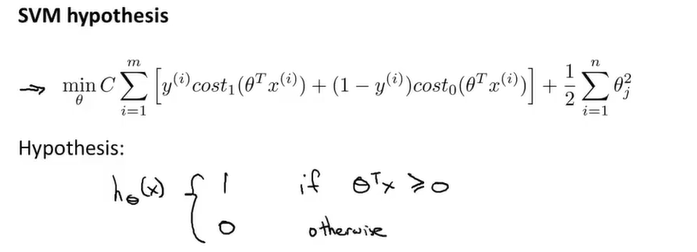 SVM hypothesis
→ min_θ C ∑_{i=1}^{m} [y^{(i)}cost₁(θᵀx^{(i)}) + (1 − y^{(i)})cost₀(θᵀx^{(i)})] + 1/2 ∑_{i=1}^{n} θ_j^2
Hypothesis:
h_θ(x) { 1 if θᵀx ≥ 0
0 otherwise